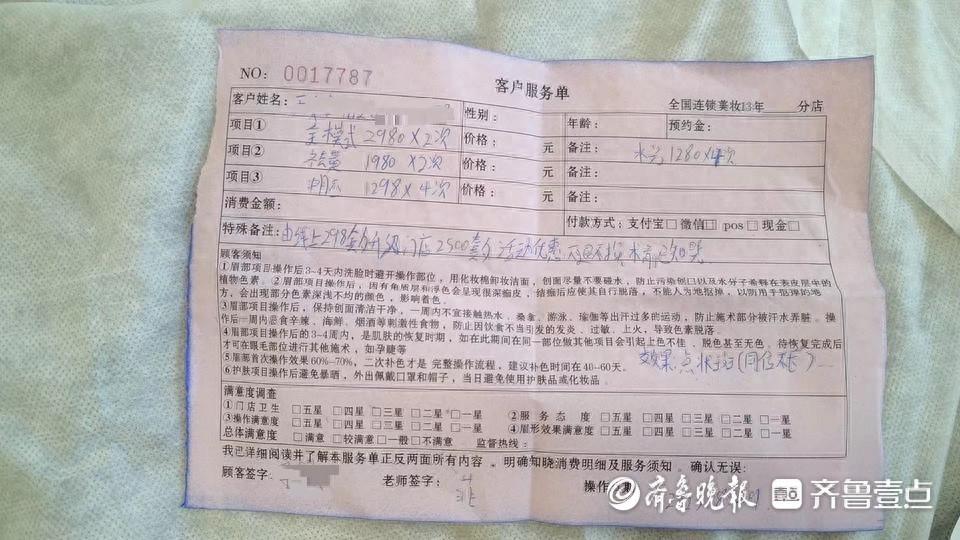 NO: 0017787
客户服务单
客户姓名: 性别: 全国连锁美妆13年 分店
年龄: 预约金:
项目① 全模式 2980×2次 价格: 元 备注: 水光1280×4次
项目② 1980×3次 价格: 元 备注:
项目③ 1298×4次 价格: 元 备注:
消费金额: 付款方式: 支付宝□ 微信□ pos□ 现金□
特殊备注: 由线上298套餐升级门店2900套餐 活动优惠
顾客须知
①眉部项目操作后3~4天内洗脸时避开操作部位,用化妆棉卸妆洁面,创面尽量不要碰水,防止污染创口以及水分子稀释在表皮层中的
植物色素。②眉部项目操作后,因有角质层和浮色会呈现很深痂皮,结痂后应使其自行脱落,不能人为地抠掉,以防用手抠理的地
方,会出现部分色素深浅不均的颜色,影响着色。
③眉部项目操作后,保持创面清洁干净,一周内不宜接触热水、桑拿、游泳、瑜伽等出汗过多的运动,防止施术部分被汗水弄脏。操
作后一周内忌食辛辣、海鲜、烟酒等刺激性食物,防止因饮食不当引发的发炎、过敏、上火,导致色素脱落。
④眉部项目操作后的3~4周内,是肌肤的恢复时期,如在此期间在同一部位做其他项目会引起上色不佳、脱色甚至无色。待恢复完成后
才可在眼毛部位进行其他施术,如孕睫等
⑤眉部首次操作效果60%~70%,二次补色才是 完整操作流程,建议补色时间在40~60天。
⑥护肤项目操作后避免暴晒,外出佩戴口罩和帽子,当日避免使用护肤品或化妆品。
效果点状
满意度调查
①门店卫生 □五星 □四星 □三星 □二星 □一星 ②服务态度 □五星 □四星 □三星 □二星 □一星
③操作满意度 □五星 □四星 □三星 □二星 □一星 ④眉形效果满意度 □五星 □四星 □三星 □二星 □一星
总体满意度 □满意 □较满意 □一般 □不满意 监督热线:
我已详细阅读并了解本服务单正反两面所有内容。明确知晓消费明细及服务须知 确认无误:
顾客签字: 老师签字: 操作
齐鲁晚报 壹点 齐鲁壹点